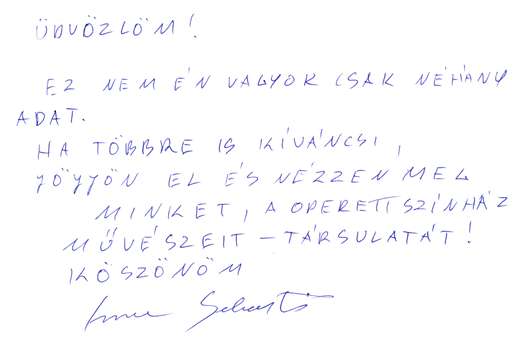 ÜDVÖZLÖM!
EZ NEM ÉN VAGYOK CSAK NÉHÁNY
ADAT.
HA TÖBBRE IS KÍVÁNCSI,
JÖJJÖN EL ÉS NÉZZEN MEG
MINKET, A OPERETTSZÍNHÁZ
MŰVÉSZEIT - TÁRSULATÁT!
KÖSZÖNÖM